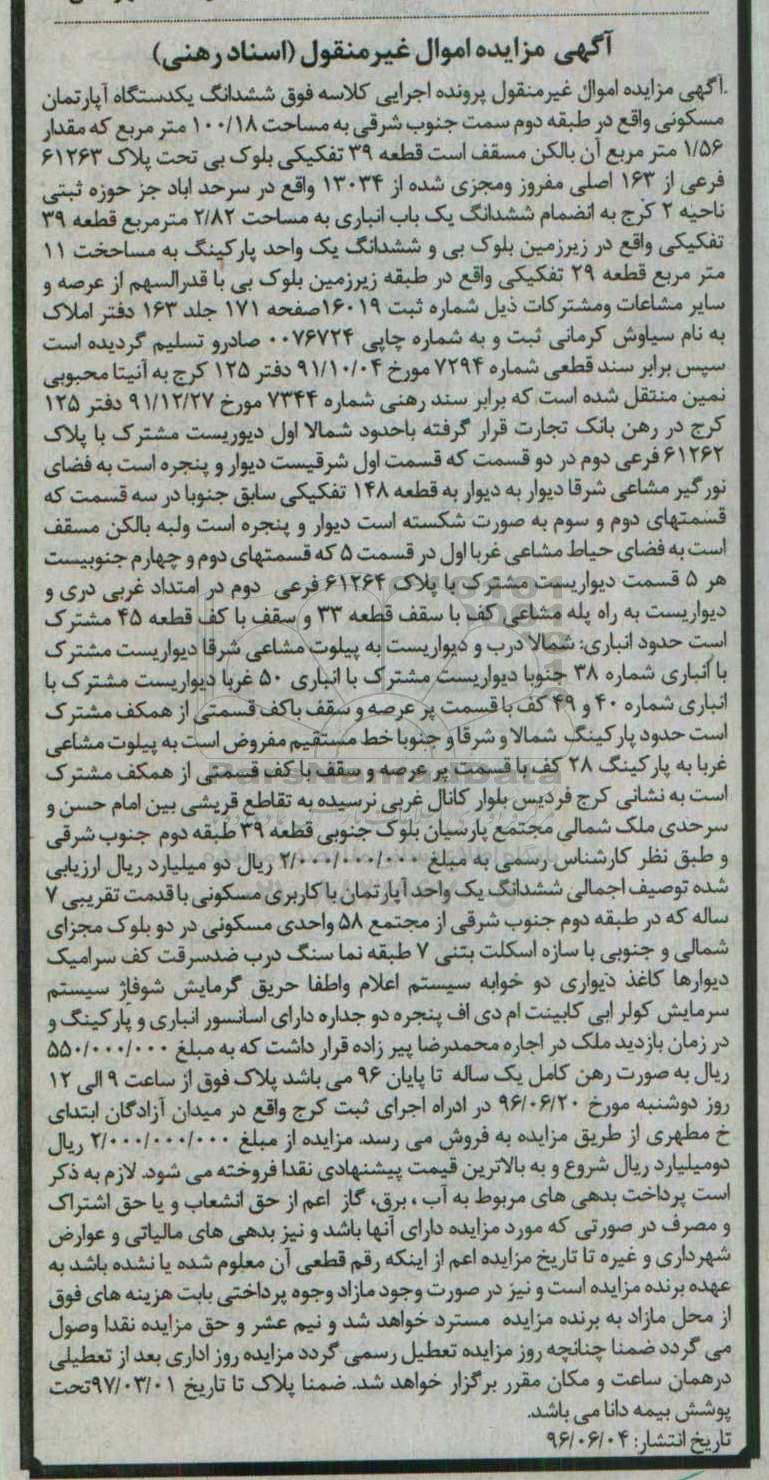 آگهی مزایده اموال غیرمنقول (اسناد رهنی)
آگهی مزایده اموال غیرمنقول پرونده اجرایی کلاسه فوق ششدانگ یکدستگاه آپارتمان
مسکونی واقع در طبقه دوم سمت جنوب شرقی به مساحت ۱۰۰/۱۸ متر مربع که مقدار
۱/۵۶ متر مربع آن بالکن مسقف است قطعه ۳۹ تفکیکی بلوک بی تحت پلاک ۶۱۲۶۳
فرعی از ۱۶۳ اصلی مفروز ومجزی شده از ۱۳۰۳۴ واقع در سرحد اباد جز حوزه ثبتی
ناحیه ۲ کرج به انضمام ششدانگ یک باب انباری به مساحت ۲/۸۲ مترمربع قطعه ۳۹
تفکیکی واقع در زیرزمین بلوک بی و ششدانگ یک واحد پارکینگ به مساحخت ۱۱
متر مربع قطعه ۲۹ تفکیکی واقع در طبقه زیرزمین بلوک بی با قدرالسهم از عرصه و
سایر مشاعات ومشترکات ذیل شماره ثبت ۱۶۰۱۹صفحه ۱۷۱ جلد ۱۶۳ دفتر املاک
به نام سیاوش کرمانی ثبت و به شماره چاپی ۰۰۷۶۷۲۴ صادرو تسلیم گردیده است
سپس برابر سند قطعی شماره ۷۲۹۴ مورخ ۹۱/۱۰/۰۴ دفتر ۱۲۵ کرج به آنیتا محبوبی
نمین منتقل شده است که برابر سند رهنی شماره ۷۳۴۴ مورخ ۹۱/۱۲/۲۷ دفتر ۱۲۵
کرج در رهن بانک تجارت قرار گرفته باحدود شمالا اول دیوریست مشترک با پلاک
۶۱۲۶۲ فرعی دوم در دو قسمت که قسمت اول شرقیست دیوار و پنجره است به فضای
نورگیر مشاعی شرقا دیوار به دیوار به قطعه ۱۴۸ تفکیکی سابق جنوبا در سه قسمت که
قسمتهای دوم و سوم به صورت شکسته است دیوار و پنجره است ولبه بالکن مسقف
است به فضای حیاط مشاعی غربا اول در قسمت ۵ که قسمتهای دوم و چهارم جنوبیست
هر ۵ قسمت دیواریست مشترک با پلاک ۶۱۲۶۴ فرعی دوم در امتداد غربی دری و
دیواریست به راه پله مشاعی کف با سقف قطعه ۳۳ و سقف با کف قطعه ۴۵ مشترک
است حدود انباری: شمالا درب و دیواریست به پیلوت مشاعی شرقا دیواریست مشترک
با انباری شماره ۳۸ جنوبا دیواریست مشترک با انباری ۵۰ غربا دیواریست مشترک با
انباری شماره ۴۰ و ۴۹ کف با قسمت پر عرصه و سقف باکف قسمتی از همکف مشترک
است حدود پارکینگ شمالا و شرقا و جنوبا خط مستقیم مفروض است به پیلوت مشاعی
غربا به پارکینگ ۲۸ کف با قسمت پر عرصه و سقف با کف قسمتی از همکف مشترک
است به نشانی کرج فردیس بلوار کانال غربی نرسیده به تقاطع قریشی بین امام حسن و
سرحدی ملک شمالی مجتمع پارسیان بلوک جنوبی قطعه ۳۹ طبقه دوم جنوب شرقی
و طبق نظر کارشناس رسمی به مبلغ ۲/۰۰۰/۰۰۰/۰۰۰ ریال دو میلیارد ریال ارزیابی
شده توصیف اجمالی ششدانگ یک واحد آپارتمان با کاربری مسکونی با قدمت تقریبی ۷
ساله که در طبقه دوم جنوب شرقی از مجتمع ۵۸ واحدی مسکونی در دو بلوک مجزای
شمالی و جنوبی با سازه اسکلت بتنی ۷ طبقه نما سنگ درب ضدسرقت کف سرامیک
دیوارها کاغذ دیواری دو خوابه سیستم اعلام واطفا حریق گرمایش شوفاژ سیستم
سرمایش کولر ابی کابینت ام دی اف پنجره دو جداره دارای اسانسور انباری و پارکینگ و
در زمان بازدید ملک در اجاره محمدرضا پیر زاده قرار داشت که به مبلغ ۵۵۰/۰۰۰/۰۰۰
ریال به صورت رهن کامل یک ساله تا پایان ۹۶ می باشد پلاک فوق از ساعت ۹ الی ۱۲
روز دوشنبه مورخ ۹۶/۰۶/۲۰ در ادراه اجرای ثبت کرج واقع در میدان آزادگان ابتدای
خ مطهری از طریق مزایده به فروش می رسد. مزایده از مبلغ ۲/۰۰۰/۰۰۰/۰۰۰ ریال
دومیلیارد ریال شروع و به بالاترین قیمت پیشنهادی نقدا فروخته می شود. لازم به ذکر
است پرداخت بدهی های مربوط به آب ، برق، گاز اعم از حق انشعاب و یا حق اشتراک
و مصرف در صورتی که مورد مزایده دارای آنها باشد و نیز بدهی های مالیاتی و عوارض
شهرداری و غیره تا تاریخ مزایده اعم از اینکه رقم قطعی آن معلوم شده یا نشده باشد به
عهده برنده مزایده است و نیز در صورت وجود مازاد وجوه پرداختی بابت هزینه های فوق
از محل مازاد به برنده مزایده مسترد خواهد شد و نیم عشر و حق مزایده نقدا وصول
می گردد ضمنا چنانچه روز مزایده تعطیل رسمی گردد مزایده روز اداری بعد از تعطیلی
درهمان ساعت و مکان مقرر برگزار خواهد شد. ضمنا پلاک تا تاریخ ۹۷/۰۳/۰۱تحت
پوشش بیمه دانا می باشد.
تاریخ انتشار: ۹۶/۰۶/۰۴